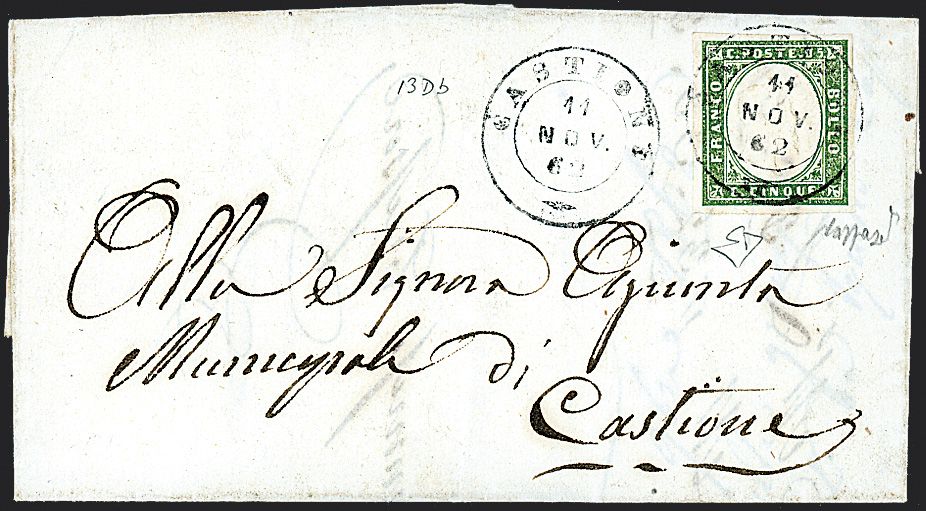 13Db
CASTIONE
11
NOV.
62
C. POSTE 5
FRANCO
BOLLO
C. CINQUE
11
NOV.
62
Alla Signora Agiunta
Municipale di
Castione